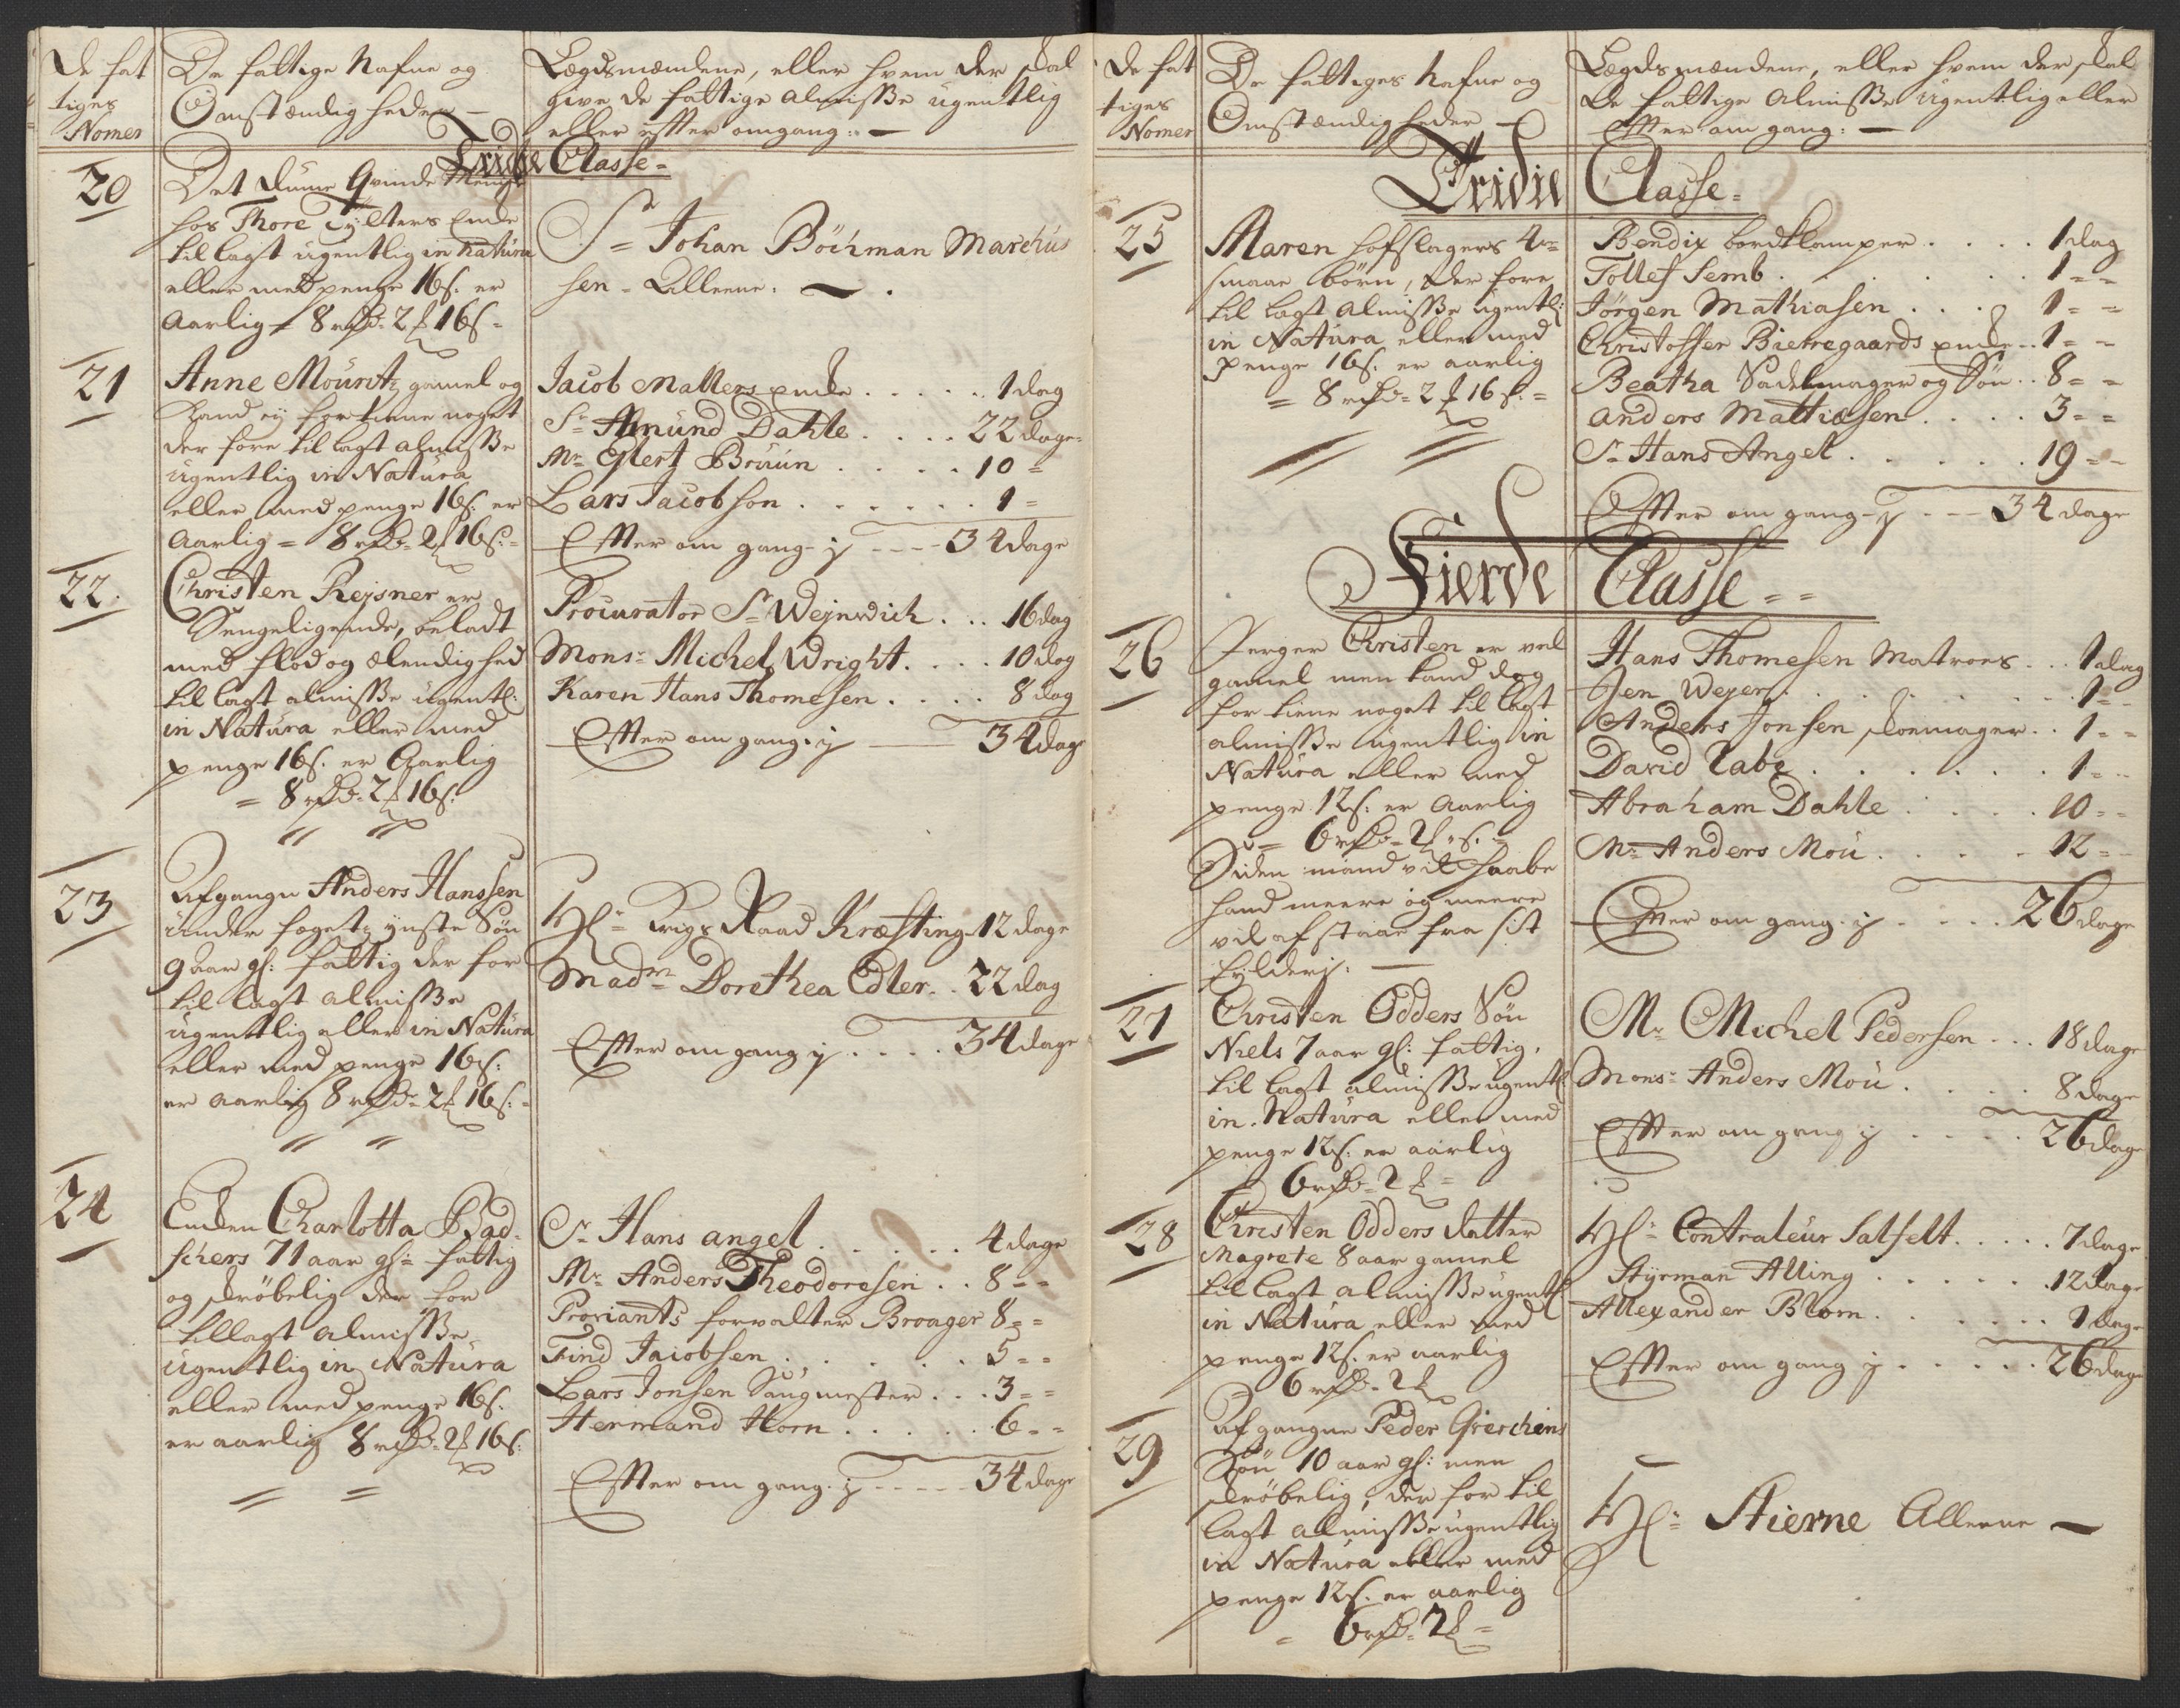 De fat
tiges
Nomer
De fattige Nafne og
Omstændigheder —
Lægdsmændene, eller hvem der skal
give de fattige almisse ugentlig
eller effter omgang: —
Tridie Classe =
20
Det dumme Qvinde Menniske
hos Thore Tÿlters Enke
tillagt ugentlig in Natura
eller med penge 16 s: er
Aarlig = 8 rdr = 2 ƒ 16 s =
Sr = Johan Böchman Marchus
sen = Alleene: —
21
Anne Mouritz gamel og
kand ej fortiene noget
der fore tillagt almisse
ugentlig in Natura
eller med penge 16 s: er
Aarlig = 8 rdr = 2 ƒ 16 s: =
Jacob Mallers enke . . . . . 1 dag
Sr Amund Dahle . . . . 22 dage =
Mr Gjert Bruun . . . . 10 =
Lars Jacobson . . . . . . 1 =
Effter om gang - ij - - - - 34 dage
22.
Christen Rejsner er
Sengeliggende, beladt
med flod og ælendighed
tillagt almisse ugentl:
in Natura eller med
penge 16 s: er Aarlig
= 8 rdr = 2 ƒ 16 s:
Procurator Sr Wejnwich . . . 16 dag
Monsr Michel Wright . . . . 10 dag
Karen Hans Thomesen . . . . 8 dag
Effter om gang. ij — 34 dage
23
Afgangne Anders Hanssen
under fogetz ÿnste Søn
9 aar gl: fattig der for
tillagt almisse
ugentlig eller in Natura
eller med penge 16 s:
er aarlig 8 rdr = 2 ƒ 16 s: =
Hr = Krigs Raad Kræfting 12 dage
Madm Dorethea Edler . . 22 dag
Effter om gang ij . . . . 34 dage
24
Enken Charlotta Bad-
schers 71 aar gl: fattig
og skrøbelig der for
tillagt almisse
ugentlig in Natura
eller med penge 16 s.
er aarlig 8 rdr = 2 ƒ 16 s:
Sr Hans angel . . . . . 4 dage
Mr Anders Theodoresen . . 8 = =
Proviants forvalter Broager 8 = =
Find Jacobsen . . . . . . 5 = =
Lars Jonsen Saugmester . . . 3 = =
Hermand Horn . . . . . 6 = =
Effter om gang. ij - - - - - 34 dage
De fat
tiges
Nomer
De fattiges Nafne og
Omstændigheder —
Lægdsmændene, eller hvem der skal
De fattige Almisse ugentlig eller
Effter om gang: —
Tridie Classe =
25
Maren Hofslagers 4re
smaae børn, der fore
tillagt almisse ugentl:
in Natura eller med
penge 16 s: er aarlig
= 8 rdr = 2 ƒ 16 s: =
Bendix bordklamper . . . . 1 dag
Tollef Semb . . . . . . . 1 = =
Jørgen Mathiasen . . . . 1 = =
Christoffer Bierregaards enke . . 1 = =
Beatha Sadelmager og Søn . . 8 = =
Anders Mattiesen . . . . 3 = =
Sr Hans Angel . . . . . . 19 = =
Effter om gang - ij - - - 34 dage
Fierde Classe = =
26
Ferger Christen er vel
gamel men kand dog
for tiene noget tillagt
almisse ugentlig in
Natura eller med
penge 12 s: er Aarlig
= 6 rdr = 2 ƒ = s: =
Siden mand vil haabe
hand meere og meere
vil afstaae fra sit
fylderi: —
Hans Thomesen Matroes . . . 1 dag
Jen Wejer . . . . . . . . 1 = =
Anders Jonsen skoemager . . 1 = =
David Rabe . . . . . . . 1 = =
Abraham Dahle . . . . 10 = =
Mr Anders Mou . . . . . 12 = =
Effter om gang. ij . . . . 26 dage
27
Christen Odders Søn
Niels 7 aar gl: fattig,
tillagt almisse ugentl:
in. Natura eller med
penge 12 s: er aarlig
= 6 rdr = 2 ƒ =
Mr Michel Pedersen . . . 18 dage
Monsr Anders Mou . . . . . 8 dage
Effter om gang ij . . . . . 26 dage
28
Christen Odders datter
Magrete 8 aar gamel
tillagt almisse ugentl:
in Natura eller med
penge 12 s. er aarlig
6 rdr = 2 ƒ
Hr = Contraleur Salfelt . . . . . 7 dage
Styrman Alling . . . . . . 12 dage
Allexander Blom . . . . . . . 7 dage
Effter om gang ij . . . . . 26 dage
29
Afgangne Peder Grerchens
Søn 10 aar gl: men
skrøbelig, der for til
lagt almisse ugentlig
in Natura eller med
penge 12 s: er aarlig
= 6 rdr = 2 ƒ =
Hr = Stierne Alleene —